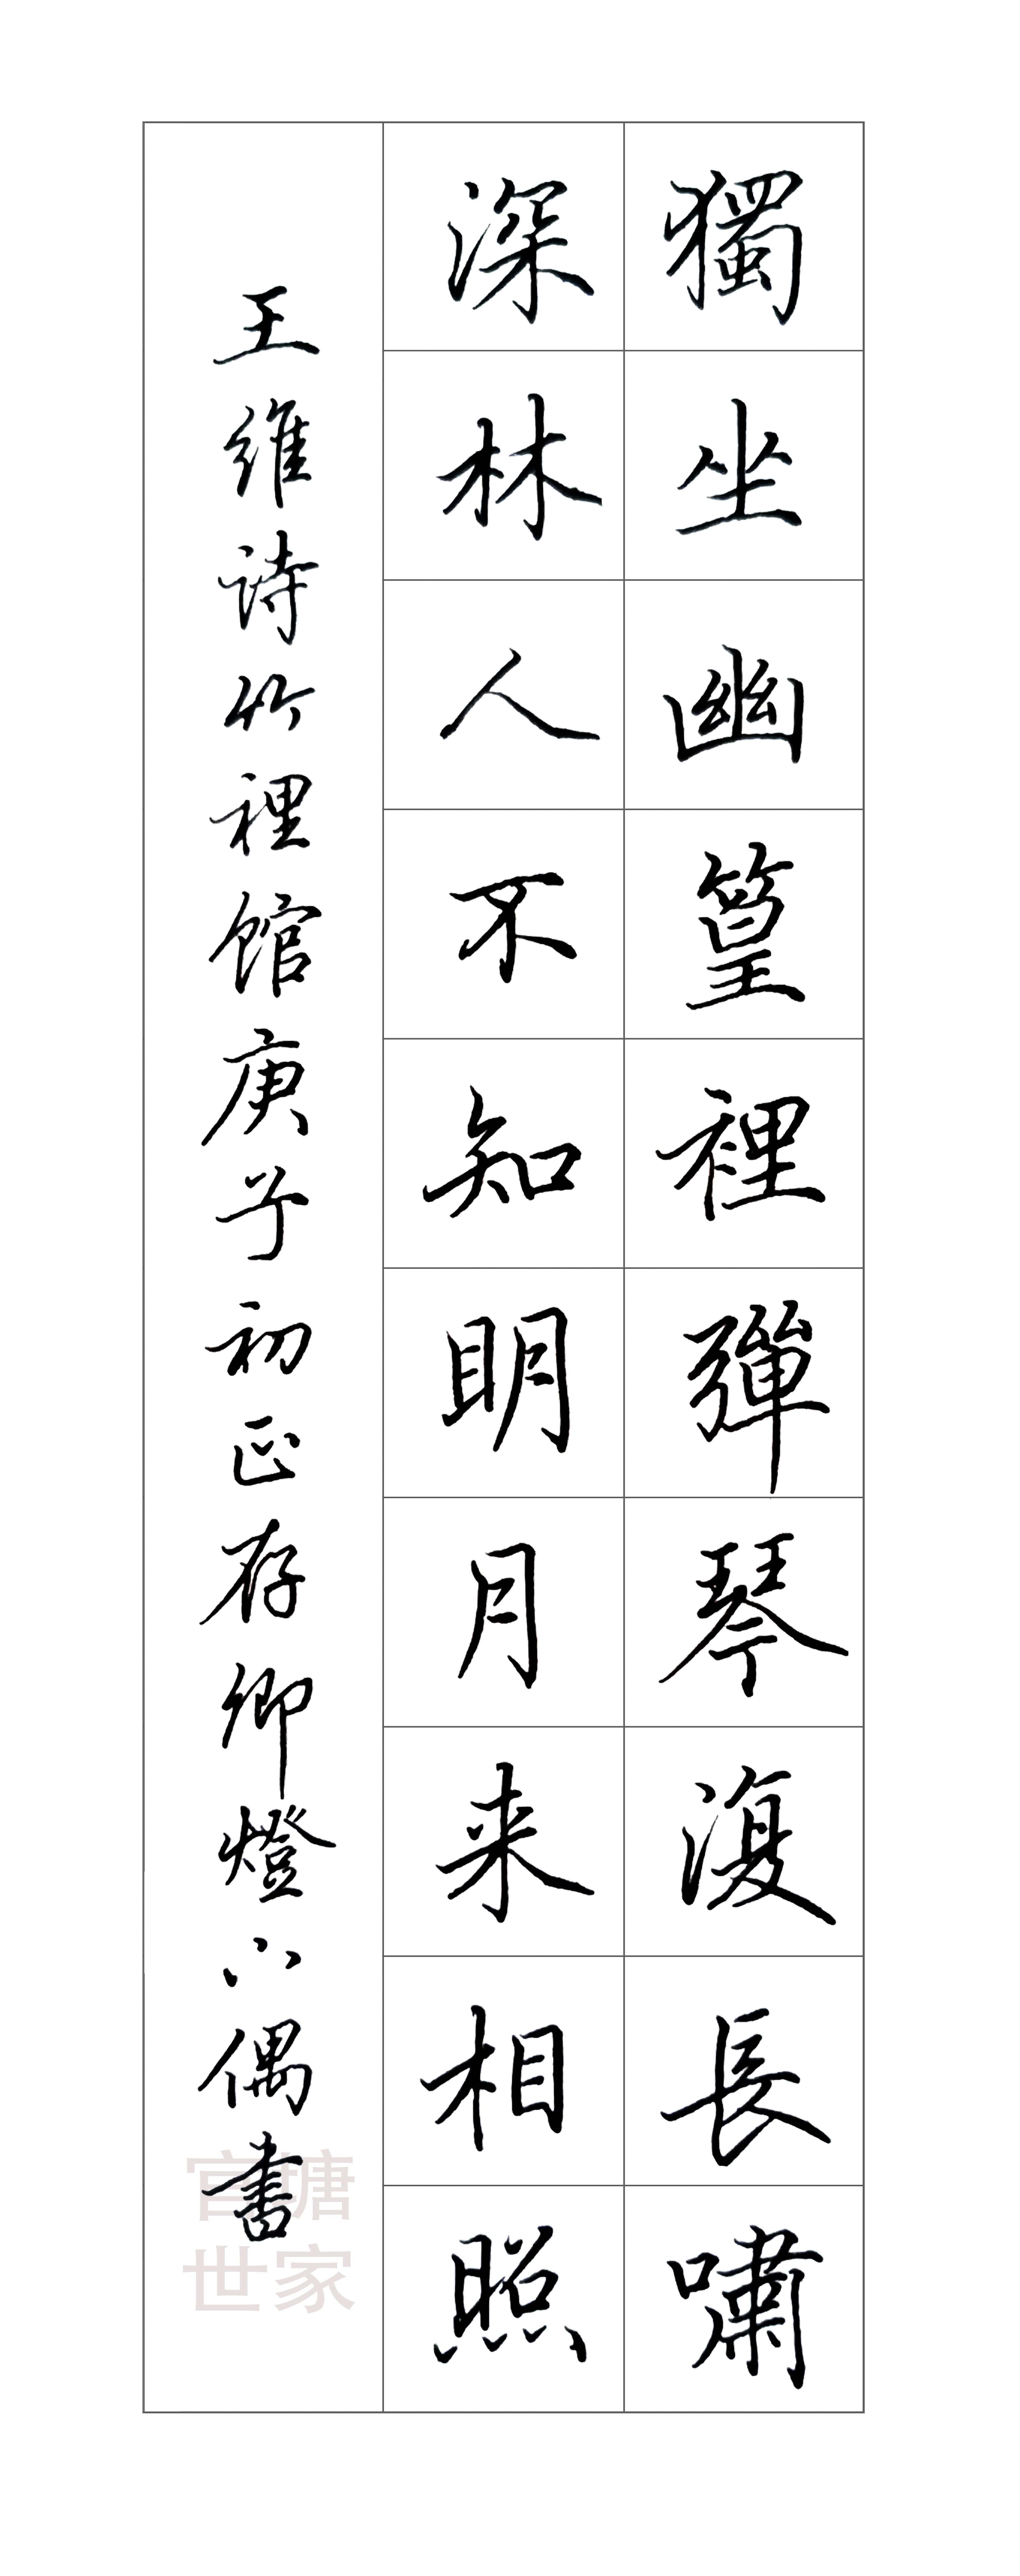 獨坐幽篁裡彈琴復長嘯
深林人不知明月来相照
王維诗竹裡馆庚子初正存卿燈下偶書
官塘
世家